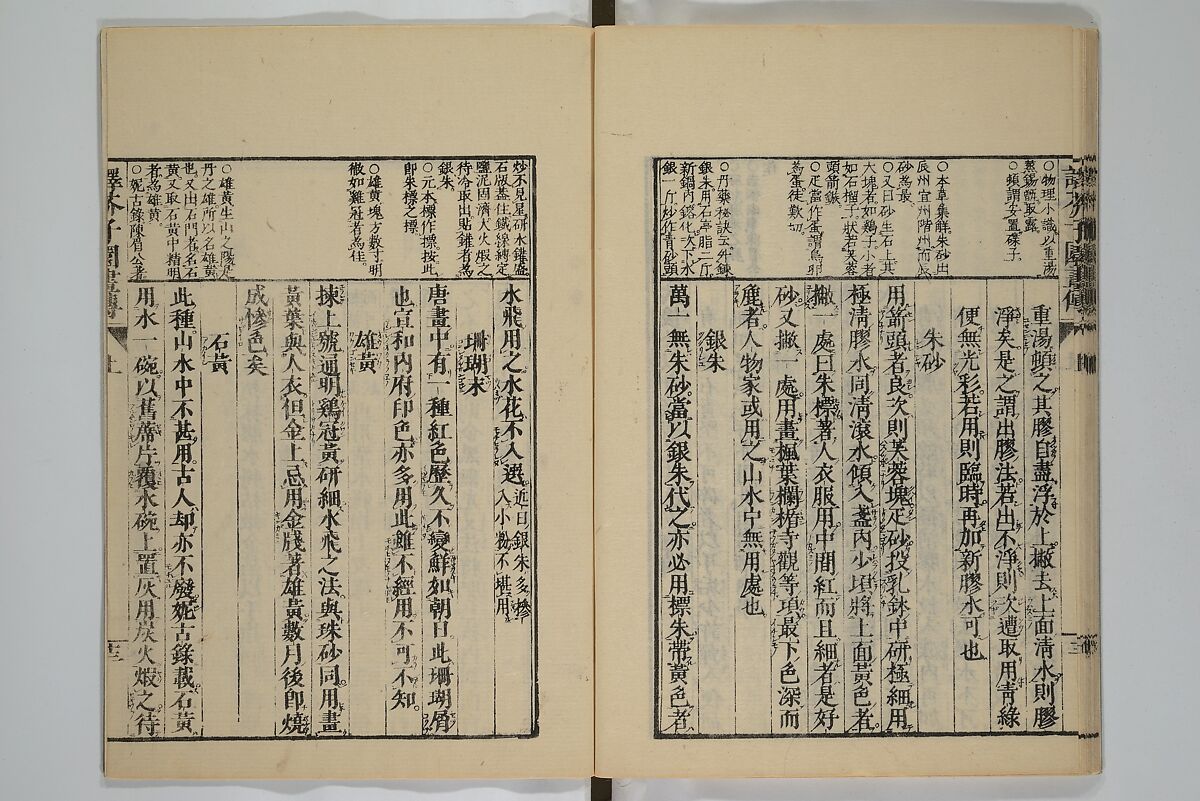 譯芥子園畫傳
○物理小識以重湯
蒸錫甑取露
○頻謂安置碟子
○本草集解朱砂出
辰州宜州階州而辰
砂為最
○又曰砂生石上其
大塊者如鷄子小者
如石榴子狀若芙蓉
頭箭鏃
○疋當作蛋謂鳥卵
為蛋徒歎切
○丹藥秘訣云升鍊
銀朱用石亭脂二斤
新鍋内鎔化次下水
銀一斤炒作青砂頭
重湯頓之其膠自盡浮於上撇去上面清水則膠
淨矣是之謂出膠法若出不淨則次遭取用青綠
便無光彩若用則臨時再加新膠水可也
朱砂
用箭頭者良次則芙蓉塊疋砂投乳鉢中研極細用
極清膠水同清滾水傾入盞内少頃將上面黃色者
撇一處曰朱標著人衣服用中間紅而且細者是好
砂又撇一處用畫楓葉欄楯寺觀等項最下色深而
麄者人物家或用之山水中無用處也
銀朱
萬一無朱砂當以銀朱代之亦必用標朱帶黃色者
炒不見星研末罐盛
石版蓋住鐵線縛定
鹽泥固濟大火煆之
待冷取出貼罐者為
銀朱
○元本標作摽按此
即朱標之標
○雄黃塊方數寸明
徹如雞冠者為佳
○雄黃生山之陽是
丹之雄所以名雄黃
也又出石門者名石
黃又取石黃中精明
者為雄黃
○妮古錄陳眉公著
水飛用之水花不入選近日銀朱多摻入小粉不堪用
珊瑚末
唐畫中有一種紅色歷久不變鮮如朝日此珊瑚屑
也宣和内府印色亦多用此雖不經用不可不知
雄黃
揀上號通明鷄冠黃研細水飛之法與珠砂同用畫
黃葉與人衣但金上忌用金牋著雄黃數月後即燒
成慘色矣
石黃
此種山水中不甚用古人却亦不廢妮古錄載石黃
用水一碗以舊蓆片覆水碗上置灰用炭火煆之待
譯芥子園畫傳